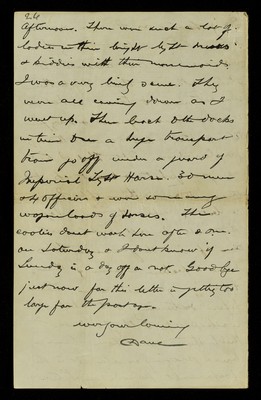 afternoon. There were such a lot of
ladies in their bright light dresses
& kiddies with their nursemaids.
It was a very lively scene. They
were all coming down as I
went up. Then back to the docks
in time to see a large transport
train go off under a guard of
Imperial Light Horse. 30 men
& 4 officers & was so many
wagon loads of horses. The
coolies dont work here after 2 o.m.
on Saturday & I dont know if
Sunday is a day off or not. Good bye
just now for this letter is getting too
large for the postage.
ever your loving
Dave